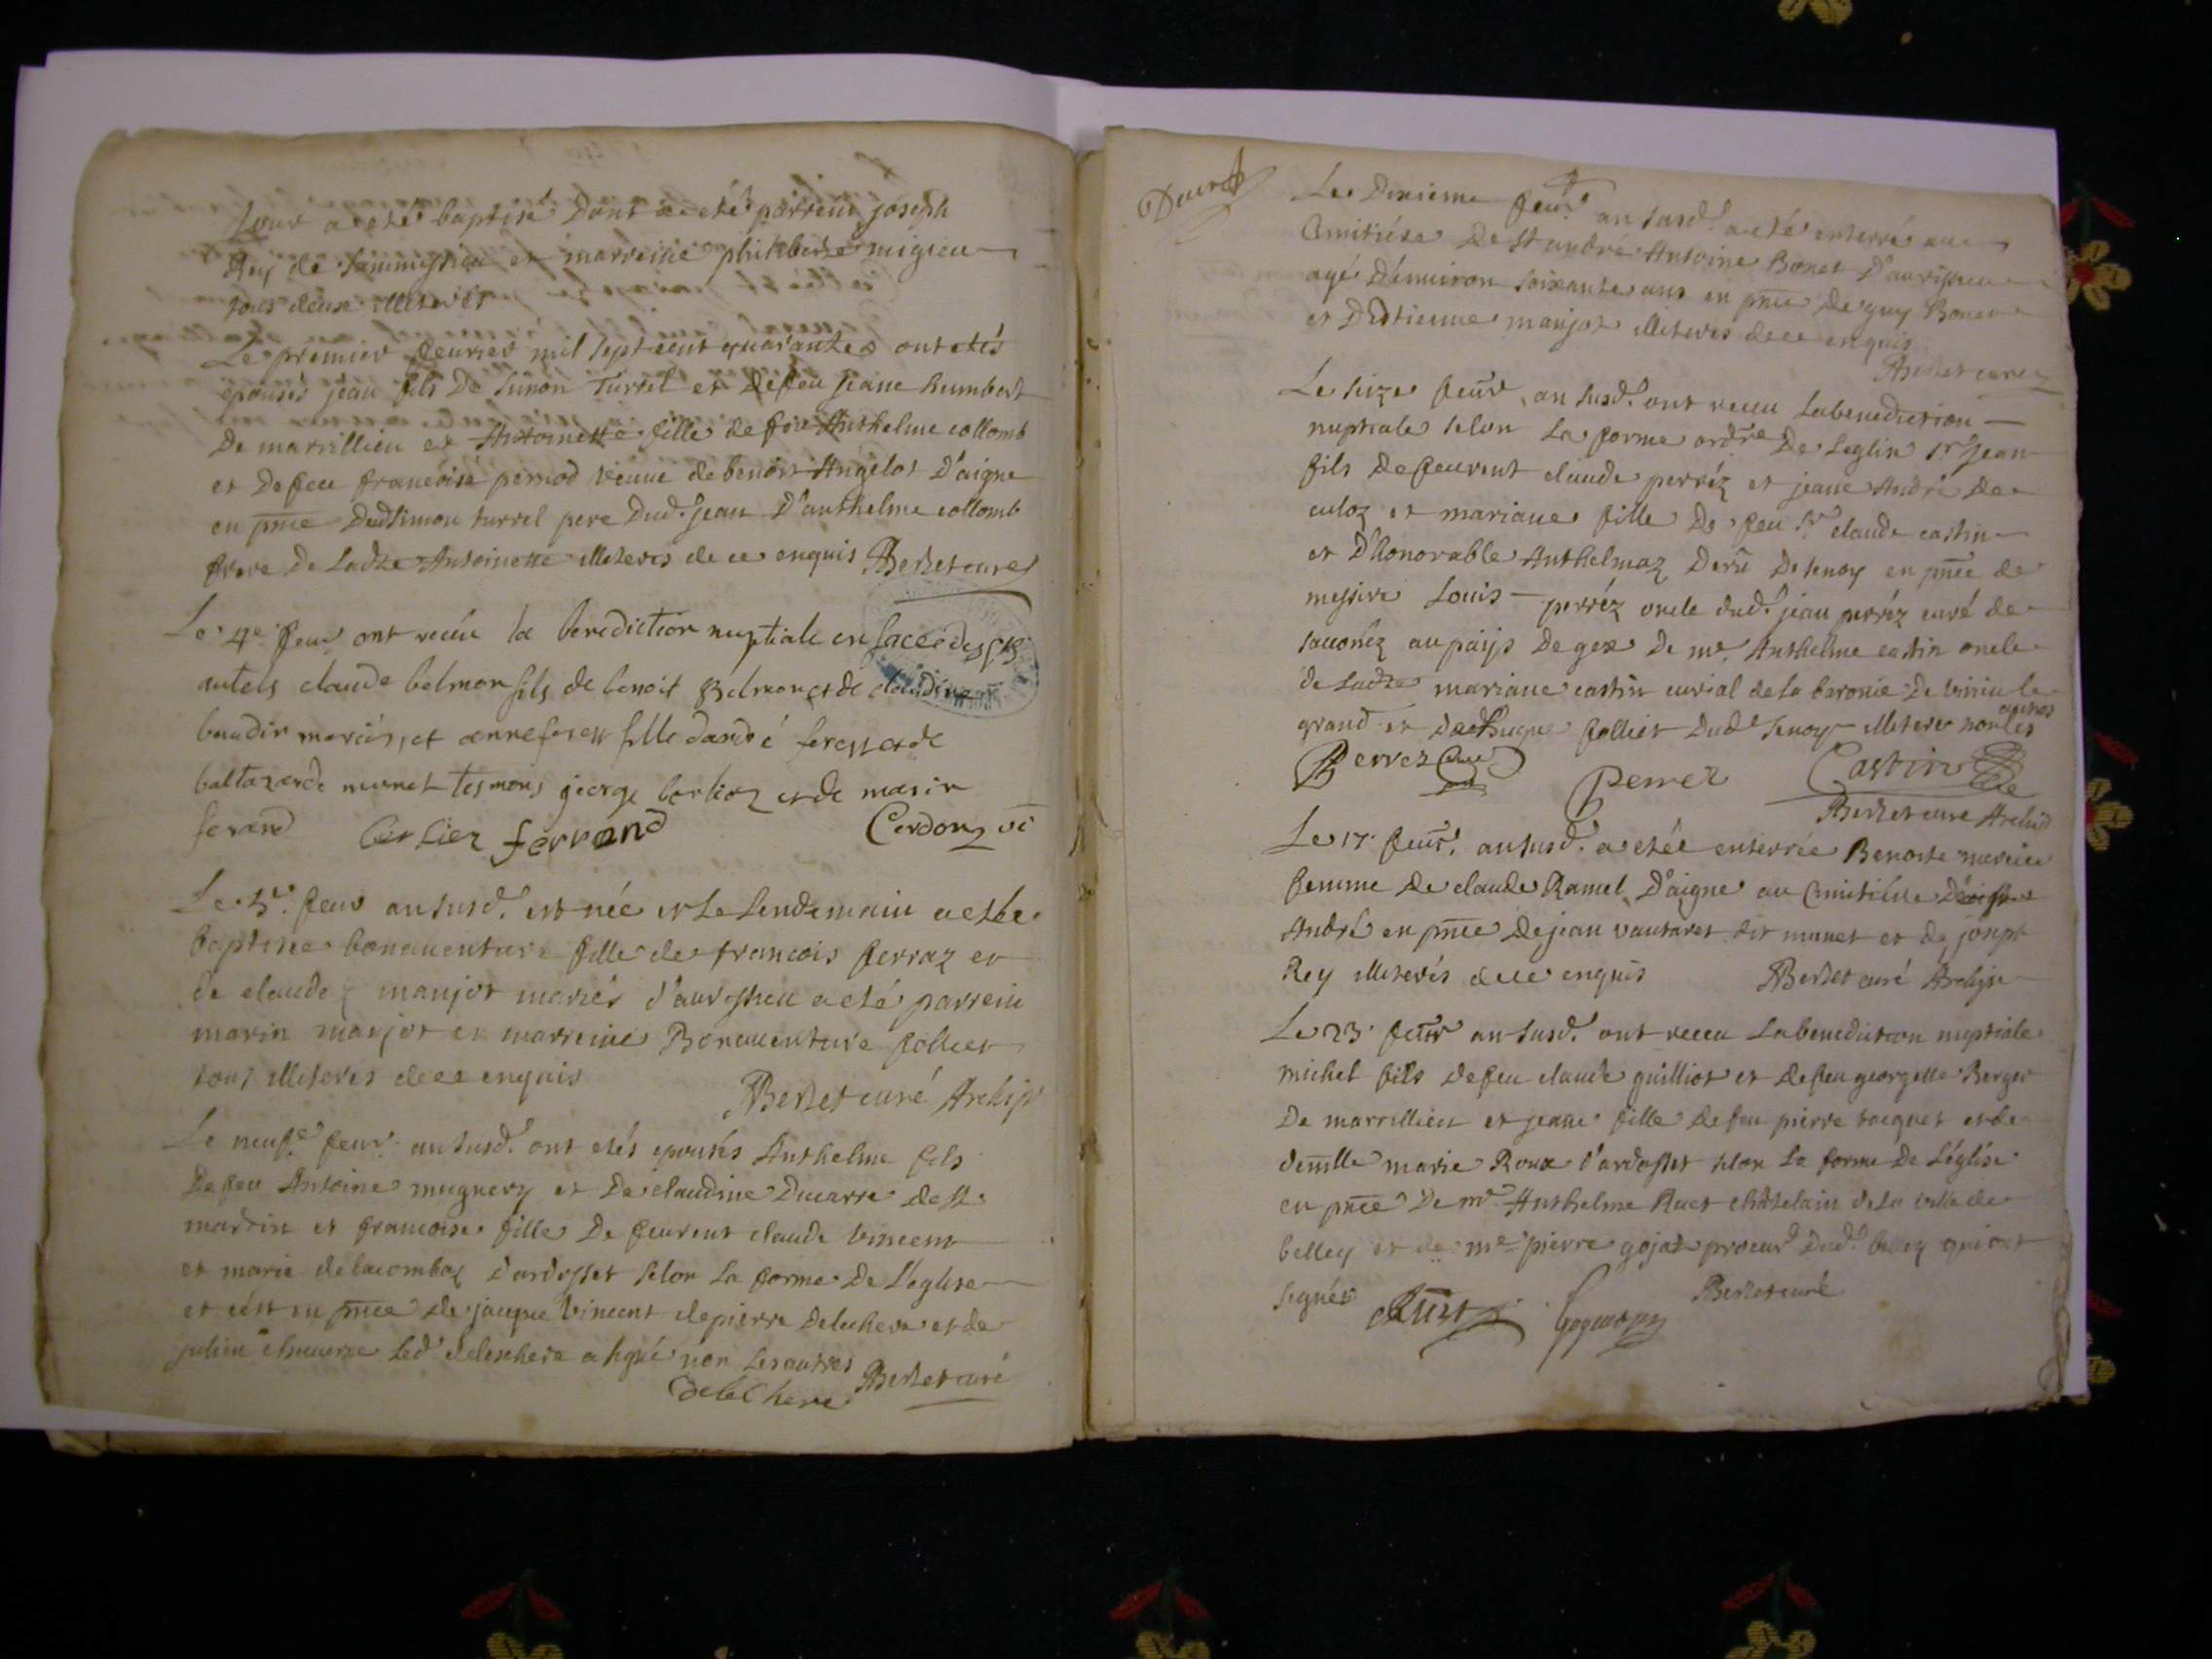 jour a eté baptisé dont a eté parrein joseph
Rey de et marreine philiberte migieu
tous deux illiterés
Le premier feurier mil sept cent quarante ont etés
epousés jean fils de simon Turrel et defeu jeane humbert
de marrillieu et Antoinette fille de feu Anthelme collomb
et defeu francoise pernod veuue de benoit Angelot D'aigne
en pnce dudsimon turrel pere dud. jean D'anthelme collomb
frere de Ladte Antoinette illiterés de ce enquis Berlet curé
Le 4e feur ont recüe la benediction nuptiale en face des sts
autels claude belmon fils de benoit Belmon et de claudine
baudin mariés, et anne fille dandré et de
baltazarde munet tesmoins george berlioz et de marin
ferand berlioz ferrand Cerdon vic
Le 5e. feur ansusd. est née et Le Lendemain a eté
baptisée bonauenture fille de francois ferraz et
de claude manjot mariés d'aurissieu a eté parrein
marin manjot et marreine Bonauenture folliet
tous illiterés de ce enquis Berlet curé Archip
Le neufe feur ansusd. ont etés epousés Anthelme fils
defeu Antoine mugnery et de claudine Ducarre de st
martin et francoise fille de feurent claude Vincent
et marie delacombaz d'ardosset selon La forme de L'eglise
et cest en pnce de jacque Vincent de pierre delechere et de
julien Led delechere a signé non Les autres Berlet curé
delechere
Le Dixieme feur. an susd. a eté enterré au
Cimitiére de st andré Antoine Bonet D'aurissieu
agé d'enuiron soixante ans en pnce de guy Bonet
et D'Etienne manjot illiterés de ce enquis
Berlet curé
Le seize feur an susd. ont receu Labenediction
nuptiale selon La forme ordre de Leglise sr jean
fils defeurent claude perréz et jeane André de
culoz et mariane fille de feu sr claude castin
et D'honorable Anthelmaz de senoy en pnce de
messire Louis perréz oncle dud. jean perréz curé de
sauoniez au pays de gex de me. Anthelme castin oncle
de Ladte mariane castin curial de la baronie de Viriu le
grand et de folliet dud senoy illiteré non les
autres
Perrez Curé Perrez Castin
Berlet curé Archip
Le 17 feur. ansusd. a etée enterrée Benoite mercier
femme de claude Ramel D'aigne au Cimitiére
André en pnce de jean vautaret dit munet et de joseph
Rey illiterés de ce enquis Berlet curé Archip
Le 23 feur ansusd. ont receu Labenediction nuptiale
michel fils defeu claude guilliot et defeu georgette Berger
de marrillieu et jeane fille defeu pierre et de
demlle marie Roux d'ardosset selon La forme de L'église
en pnce de mr Anthelme Ruet châtelain de la ville de
belley et de me pierre gojoz procur dud. belley qui ont
signés Ruet Berlet curé